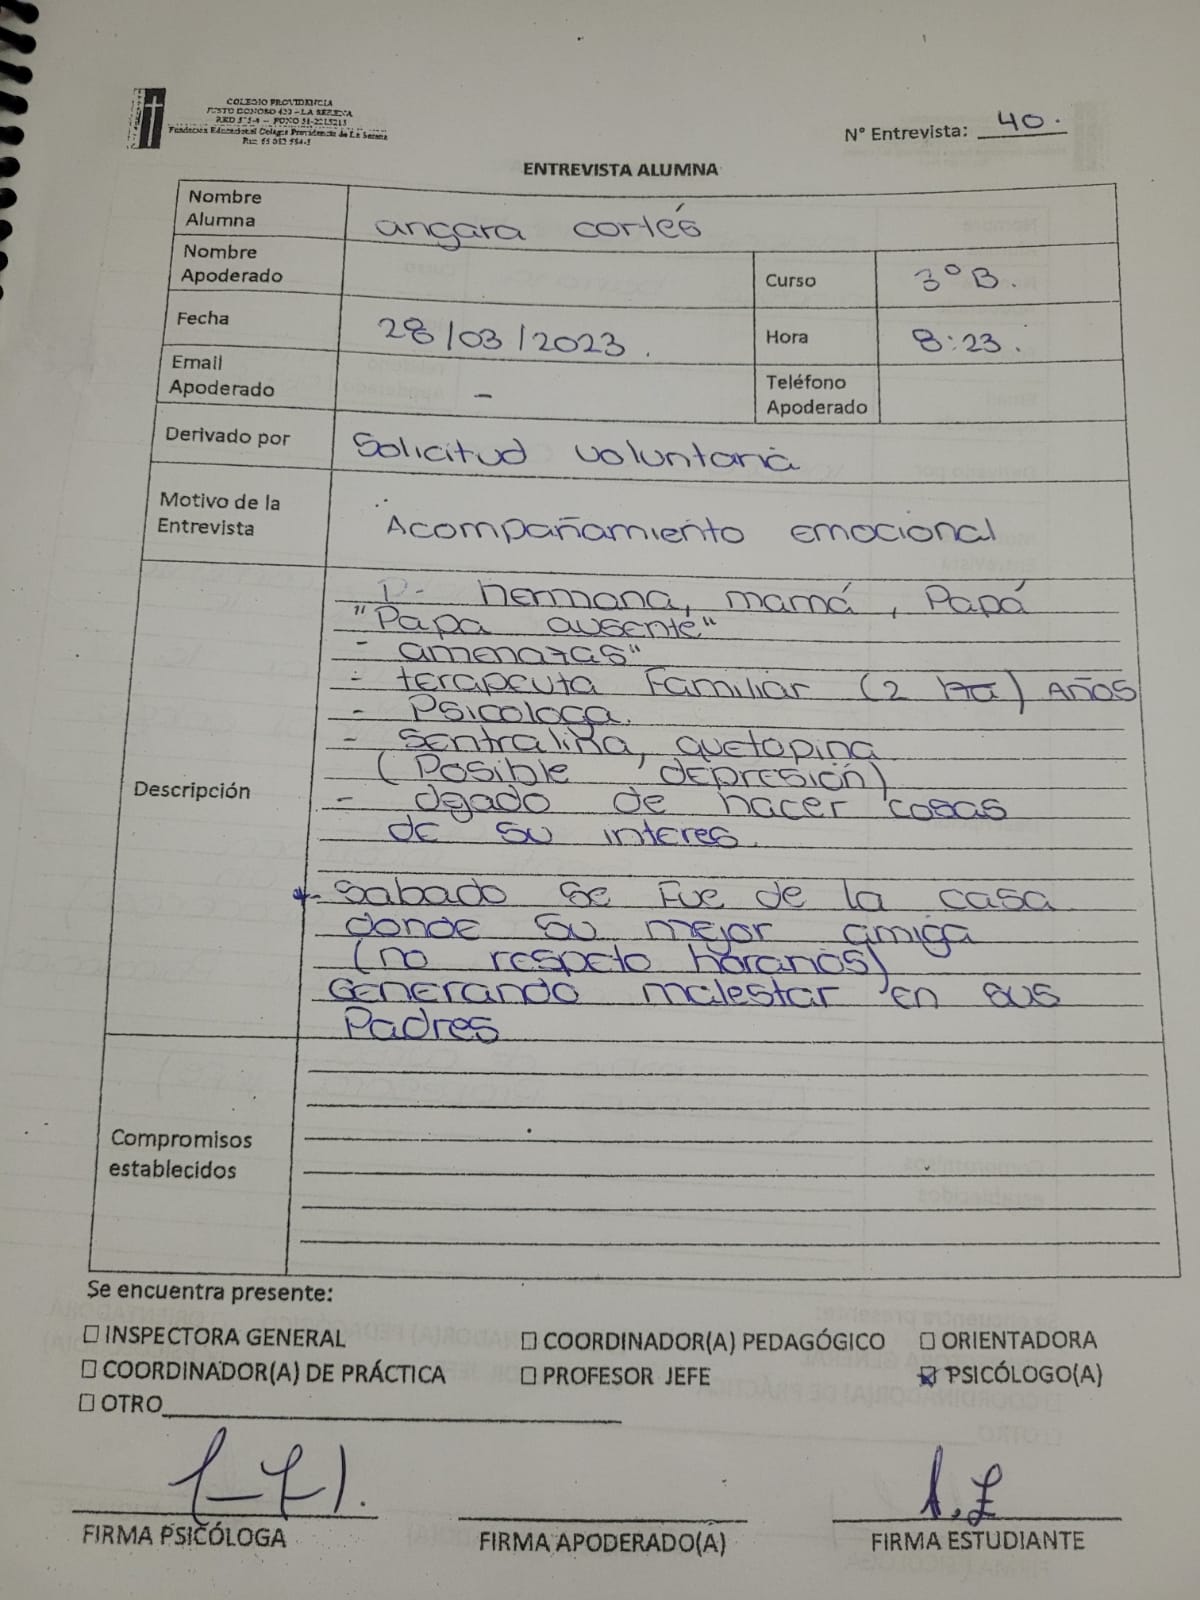 COLEGIO PROVIDENCIA
JUSTO DONOSO 420 – LA SERENA
Fundación Educacional Colegio Providencia de La Serena
N° Entrevista: 40.
ENTREVISTA ALUMNA
Nombre Alumna angara cortés
Nombre Apoderado Curso 3°B.
Fecha 28/03/2023. Hora 8:23.
Email Apoderado - Teléfono Apoderado
Derivado por Solicitud voluntaria
Motivo de la Entrevista Acompañamiento emocional
Descripción
hermana, mamá, Papá
"Papa ausente"
- amenazas"
- terapeuta Familiar (2 ) AÑOS
- Psicologa.
- Sentralina, quetapina
(Posible depresión)
- dejado de hacer cosas
de su interes.
- Sabado se Fue de la casa
donde su mejor amiga
(no respeto horarios)
Generando malestar en sus
Padres
Compromisos establecidos
Se encuentra presente:
INSPECTORA GENERAL COORDINADOR(A) PEDAGÓGICO ORIENTADORA
COORDINADOR(A) DE PRÁCTICA PROFESOR JEFE PSICÓLOGO(A)
OTRO
FIRMA PSICÓLOGA FIRMA APODERADO(A) FIRMA ESTUDIANTE